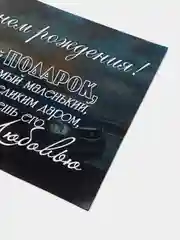 нем рождения!
ПОДАРОК,
мый маленький,
еликим даром,
ешь его
Любовью